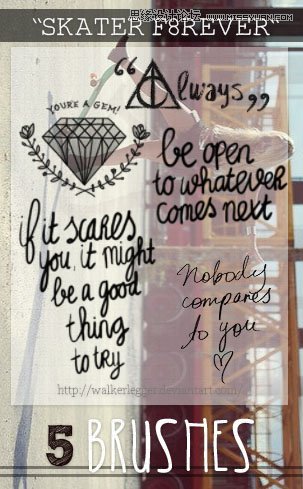 思缘设计论坛 WWW.MISSYUAN.COM
"SKATER F8REVER"
YOU'RE A GEM!
“Always”
be open
to whatever
comes next
if it scares
you, it might
be a good
thing
to try
Nobody
compares
to you
http://walkerlegger.deviantart.com/
5 BRUSHES